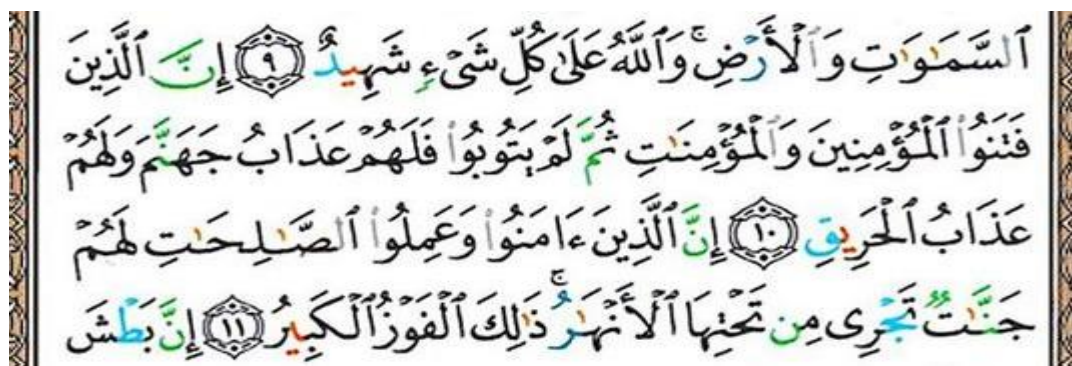 ٱلسَّمَـٰوَٰتِ وَٱلْأَرْضِ ۚ وَٱللَّهُ عَلَىٰ كُلِّ شَىْءٍ شَهِيدٌ ٩ إِنَّ ٱلَّذِينَ
فَتَنُوا۟ ٱلْمُؤْمِنِينَ وَٱلْمُؤْمِنَـٰتِ ثُمَّ لَمْ يَتُوبُوا۟ فَلَهُمْ عَذَابُ جَهَنَّمَ وَلَهُمْ
عَذَابُ ٱلْحَرِيقِ ١٠ إِنَّ ٱلَّذِينَ ءَامَنُوا۟ وَعَمِلُوا۟ ٱلصَّـٰلِحَـٰتِ لَهُمْ
جَنَّـٰتٌ تَجْرِى مِن تَحْتِهَا ٱلْأَنْهَـٰرُ ۚ ذَٰلِكَ ٱلْفَوْزُ ٱلْكَبِيرُ ١١ إِنَّ بَطْشَ